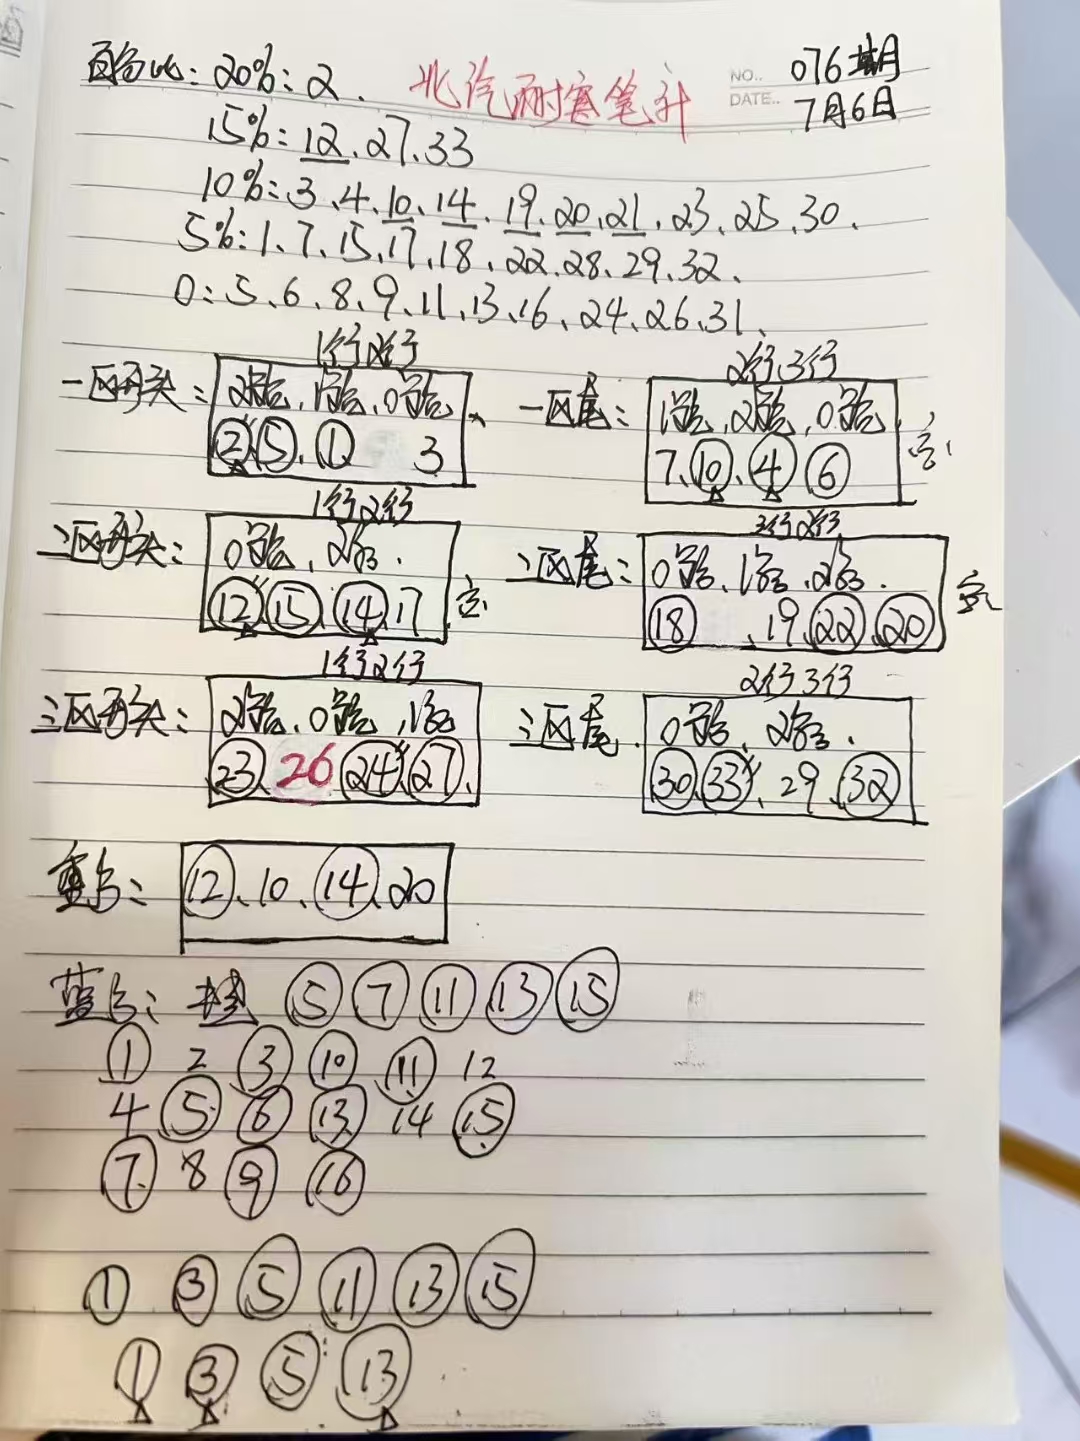 百分比：20%：2.
北汽耐寒笔记
NO.. 076期
DATE.. 7月6日
15%：12、27、33
10%：3、4、10、14、19、20、21、23、25、30、
5%：1、7、15、17、18、22、28、29、32、
0：5、6、8、9、11、13、16、24、26、31、
1行2行
一区头： 2路、1路、0路
② ⑤、① 3
2行、3行
一区尾： 1路、2路、0路
7、⑩、④ ⑥
1行2行
二区头： 0路、2路.
⑫ ⑮ ⑭ 17
3行2行
二区尾： 0路、1路、2路.
⑱ 、19、㉒、⑳
1行2行
三区头： 2路、0路、1路
㉓ 26 ㉔ ㉗.
2行3行
三区尾. 0路、2路.
㉚ ㉝、29、㉜
重点： ⑫、10、⑭、20
蓝号： ⑤ ⑦ ⑪ ⑬ ⑮
① 2 ③ ⑩ ⑪ 12
4 ⑤ ⑥ ⑬ 14 ⑮
⑦ 8 ⑨ ⑯
① ③ ⑤ ⑪ ⑬ ⑮
① ③ ⑤ ⑬